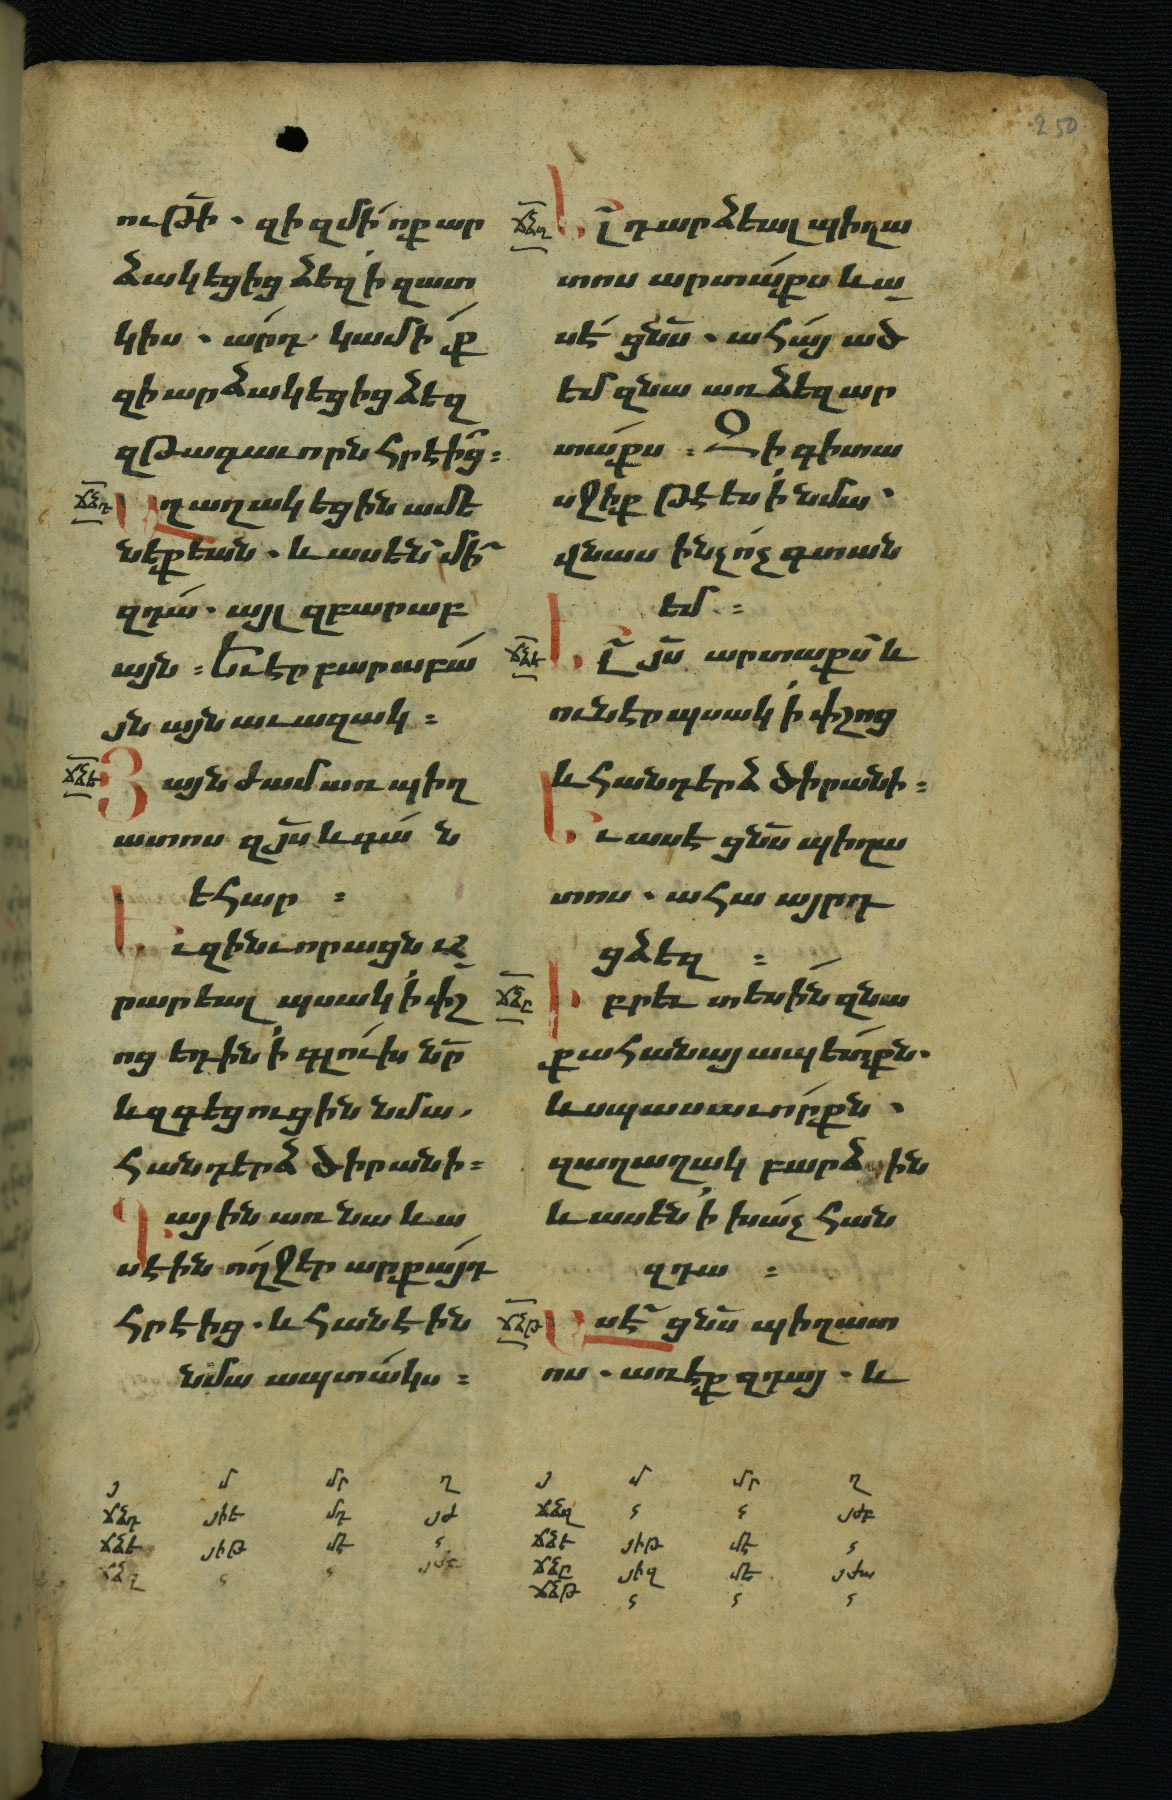 ութի · զի զմի ոք ար
ձակեցից ձեզ ի զատ
կիս · արդ կամի ք
զի արձակեցից ձեզ
զթագաւորն հրէից ։
ճձդ Աղաղակեցին ամե
նեքեան · և ասեն մի
զդա · այլ զբարաբ
այն ։ Եւ էր բարաբա
յն այն աւազակ ։
ճձե Յայն ժամ առ պիղ
ատոս զյս և գա ն
եհար ։
Եւ զինւորացն ւ
բարեալ պսակ ի փշ
ոց եդին ի գլուխ նր
և զգեցուցին նմա,
հանդերձ ծիրանի ։
Գային առ նա և ա
սէին ողջեր արքայդ
հրէից · և հանէին
նմա ապտակս ։
ճձզ Ել դարձեալ պիղա
տոս արտաքս և ա
սէ ցնս · ահայ ած
եմ զնա առ ձեզ ար
տաքս ։ Զի գիտա
սջիք թէ ես ի նմա ·
վնաս ինչ ոչ գտան
եմ ։
ճձէ Ել յս արտաքս և
ունէր պսակ ի փշոց
և հանդերձ ծիրանի ։
Եւ ասէ ցնս պիղա
տոս · ահա այրդ
ցձեզ ։
ճձը Իբրեւ տեսին զնա
քահանայապետքն ·
և սպասաւորքն ·
զաղաղակ բարձ ին
և ասեն ի խաչ հան
զդա ։
ճձթ Ասէ ցնս պիղատ
ոս · առէք զդայ · և
յ մ մր ղ
ճձդ յիե մդ յժ
ճձե յիթ մէ
ճձզ
յ մ մր ղ
ճձզ յժբ
ճձէ յիթ մէ
ճձը յիզ մե յժա
ճձթ